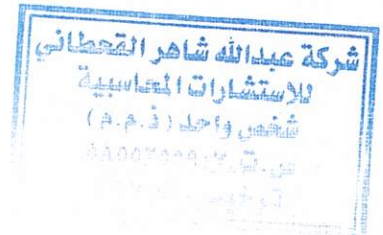 شركة عبدالله شاهر القحطاني
للاستشارات المحاسبية
شخص واحد (ذ.م.م)
س.ت